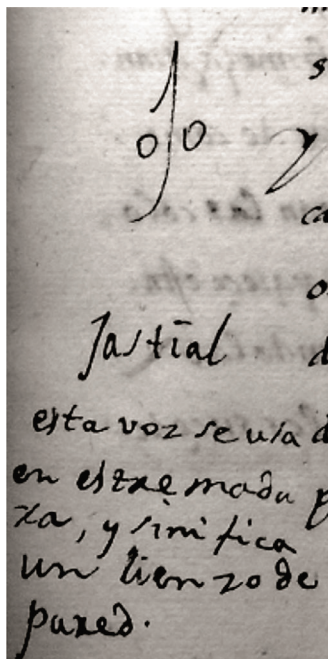 Jastial
esta voz se usa d
en estremadu
za, y sinifica
un lienzo de
pared.